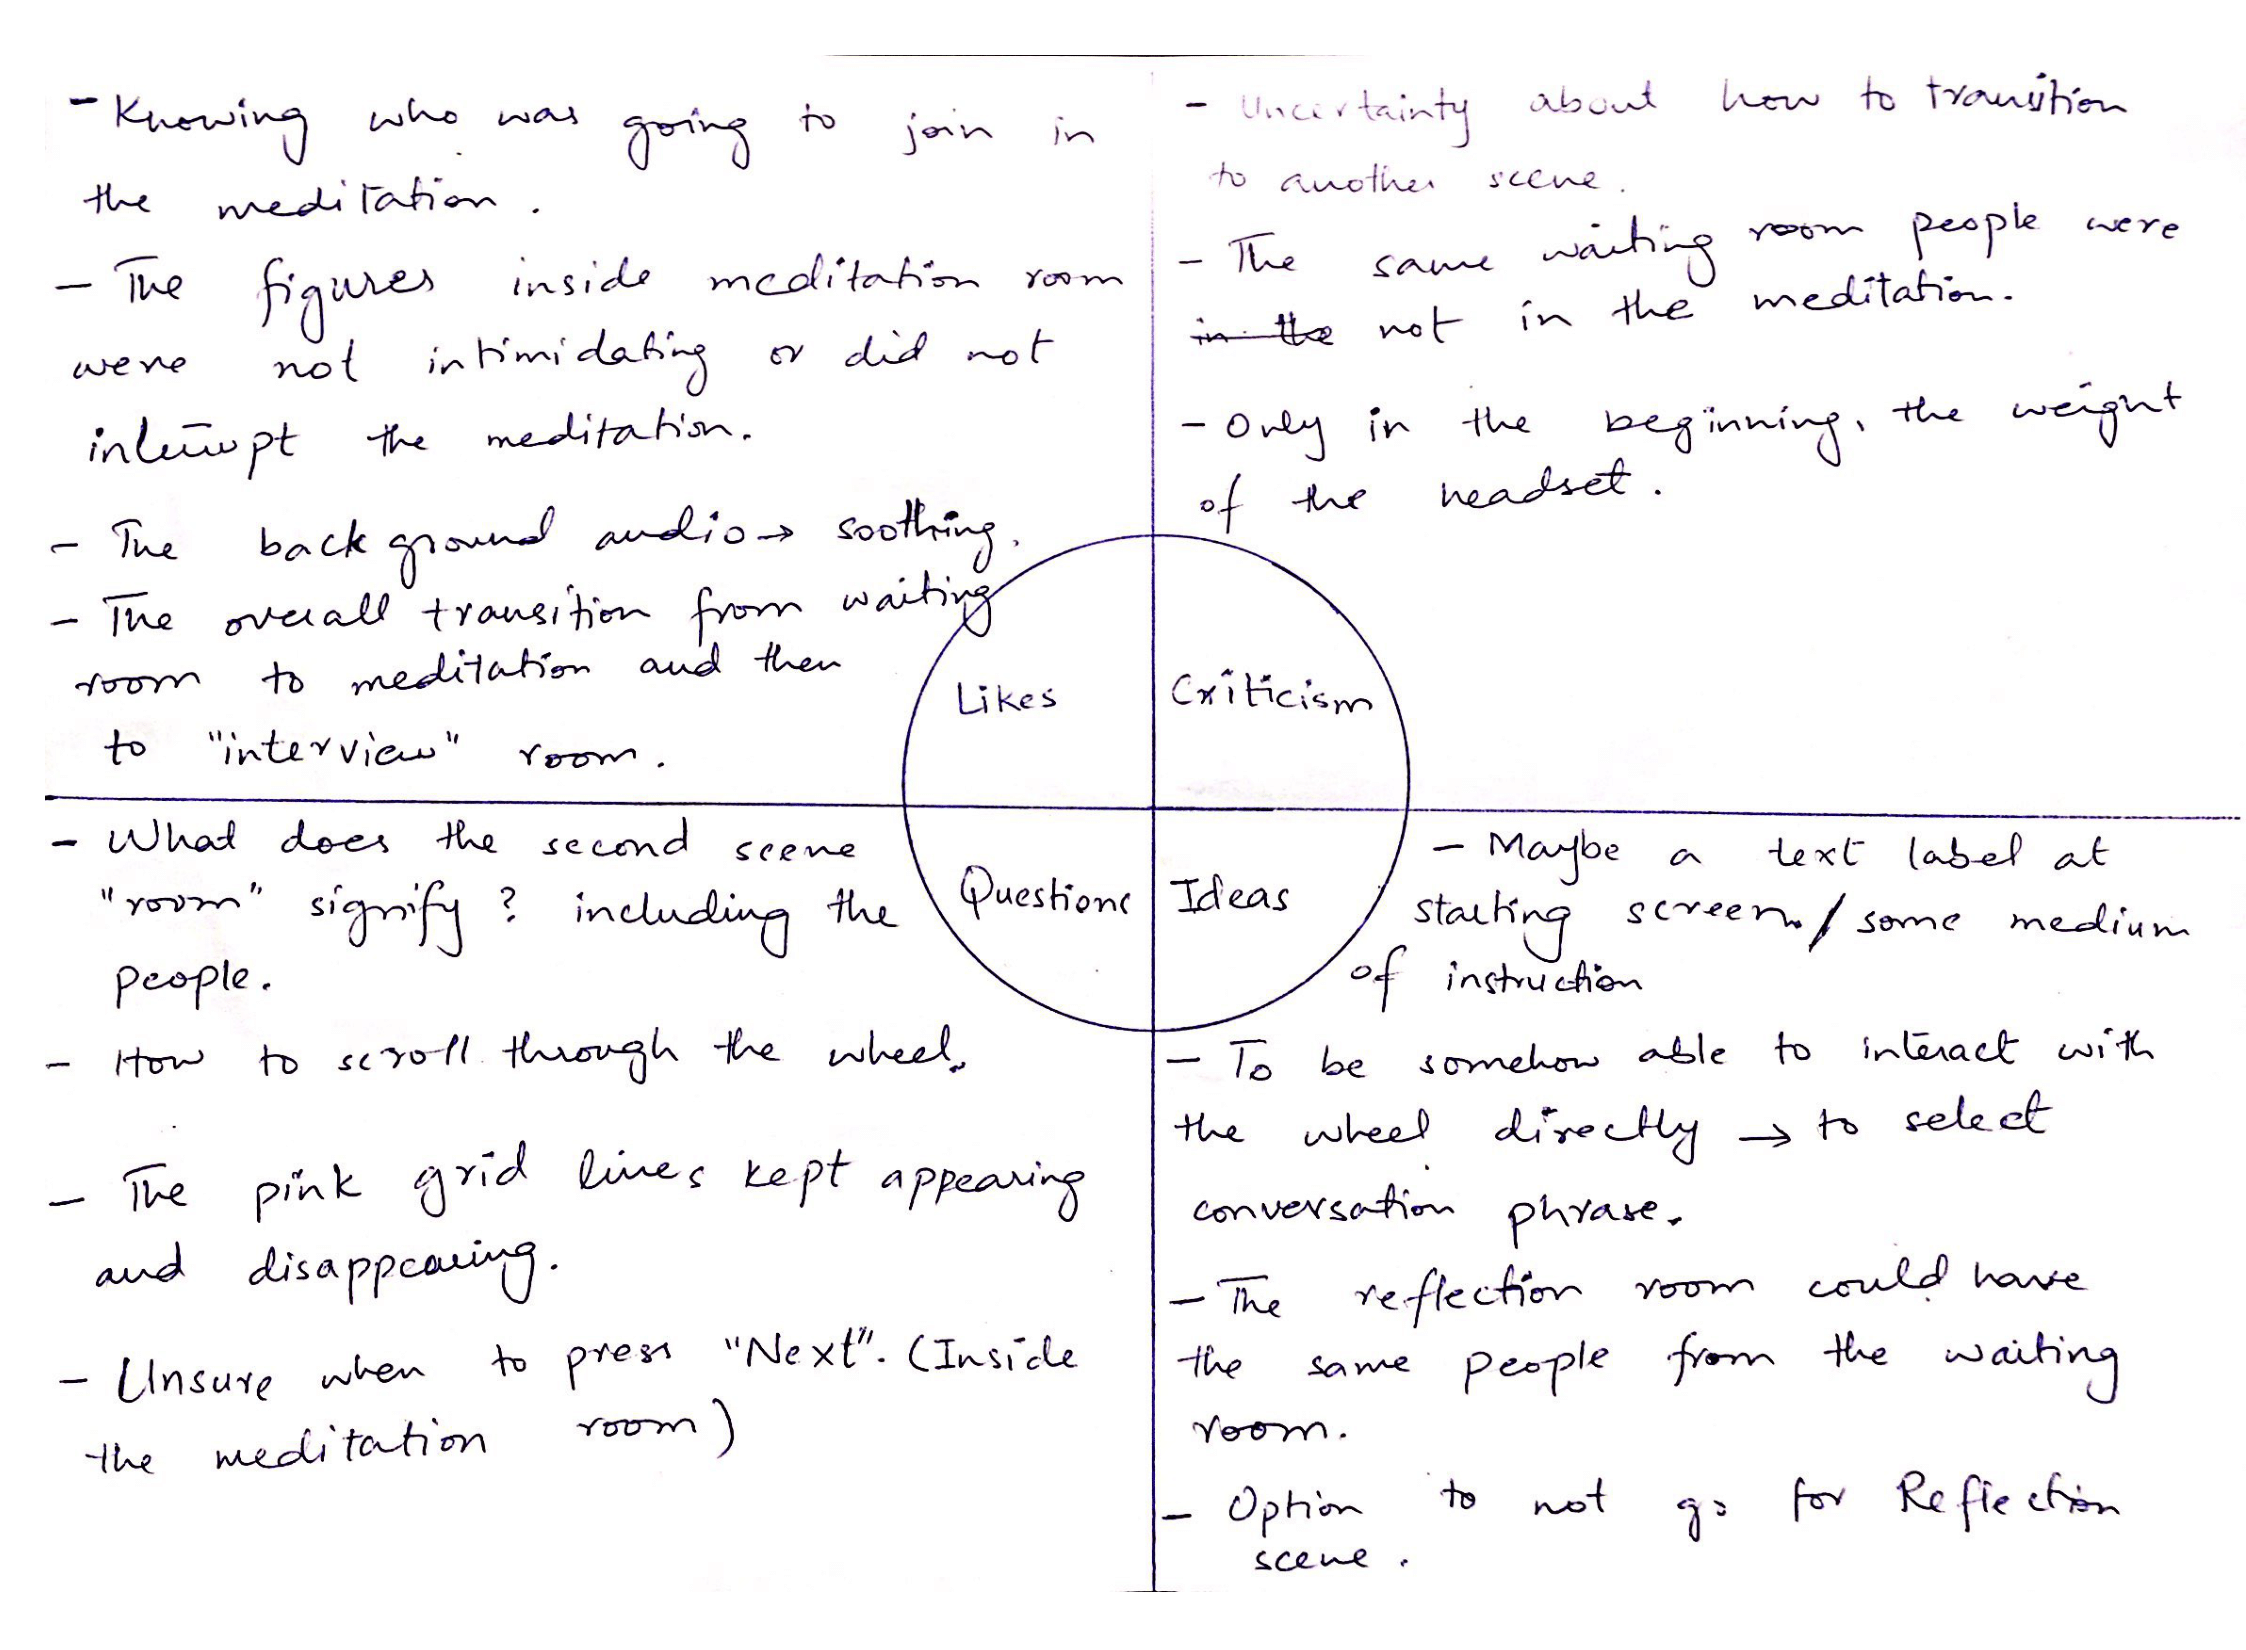 - Knowing who was going to join in
the meditation.
- The figures inside meditation room
were not intimidating or did not
interrupt the meditation.
- The background audio → soothing.
- The overall transition from waiting
room to meditation and then
to "interview" room.
Likes
- Uncertainty about how to transition
to another scene.
- The same waiting room people were
in the not in the meditation.
- Only in the beginning, the weight
of the headset.
Criticism
- What does the second scene
"room" signify? including the
people.
- How to scroll through the wheel.
- The pink grid lines kept appearing
and disappearing.
- Unsure when to press "Next". (Inside
the meditation room)
Questions
Ideas
- Maybe a text label at
starting screen / some medium
of instruction
- To be somehow able to interact with
the wheel directly → to select
conversation phrase.
- The reflection room could have
the same people from the waiting
room.
- Option to not go for Reflection
scene.